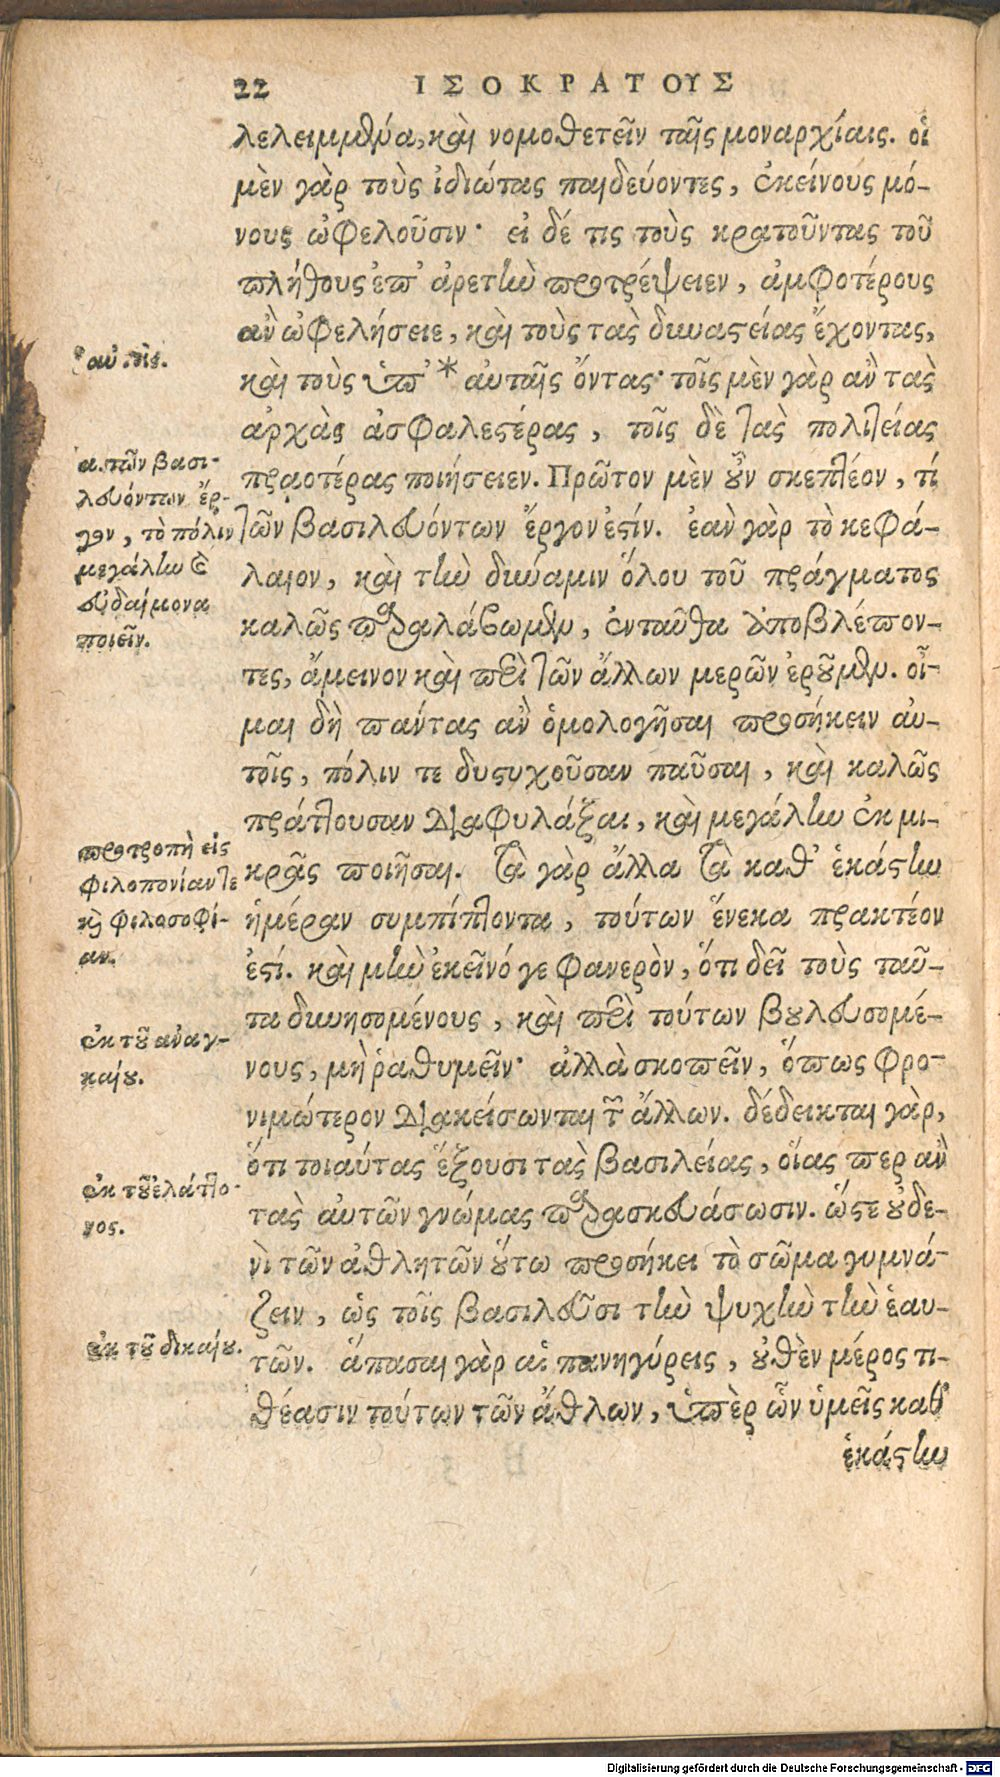 22 ΙΣΟΚΡΑΤΟΥΣ
λελειμμένα, καὶ νομοθετεῖν ταῖς μοναρχίαις. οἱ
μὲν γὰρ τοὺς ἰδιώτας παιδεύοντες, ἐκείνους μό-
νους ὠφελοῦσιν· εἰ δέ τις τοὺς κρατοῦντας τοῦ
πλήθους ἐπ' ἀρετὴν προτρέψειεν, ἀμφοτέρους
ἂν ὠφελήσειε, καὶ τοὺς τὰς δυναστείας ἔχοντας,
καὶ τοὺς ὑπ' * αὐταῖς ὄντας· τοῖς μὲν γὰρ ἂν τὰς
ἀρχὰς ἀσφαλεστέρας, τοῖς δὲ τὰς πολιτείας
πραοτέρας ποιήσειεν. Πρῶτον μὲν οὖν σκεπτέον, τί
τῶν βασιλευόντων ἔργον ἐστίν. ἐὰν γὰρ τὸ κεφά-
λαιον, καὶ τὴν δύναμιν ὅλου τοῦ πράγματος
καλῶς παραλάβωμεν, ἐνταῦθα ἀποβλέπον-
τες, ἄμεινον καὶ περὶ τῶν ἄλλων μερῶν ἐροῦμεν. οἶ-
μαι δὴ πάντας ἂν ὁμολογῆσαι προσήκειν αὐ-
τοῖς, πόλιν τε δυστυχοῦσαν παῦσαι, καὶ καλῶς
πράττουσαν διαφυλάξαι, καὶ μεγάλην ἐκ μι-
κρᾶς ποιῆσαι. τὰ γὰρ ἄλλα τὰ καθ' ἑκάστην
ἡμέραν συμπίπτοντα, τούτων ἕνεκα πρακτέον
ἐστί. καὶ μὴν ἐκεῖνό γε φανερὸν, ὅτι δεῖ τοὺς ταῦ-
τα δυνησομένους, καὶ περὶ τούτων βουλευσομέ-
νους, μὴ ῥαθυμεῖν· ἀλλὰ σκοπεῖν, ὅπως φρο-
νιμώτερον διακείσωνται τῶν ἄλλων. δέδεικται γὰρ,
ὅτι τοιαύτας ἕξουσι τὰς βασιλείας, οἵας περ ἂν
τὰς αὑτῶν γνώμας παρασκευάσωσιν. ὥστε οὐδε-
νὶ τῶν ἀθλητῶν οὕτω προσήκει τὸ σῶμα γυμνά-
ζειν, ὡς τοῖς βασιλεῦσι τὴν ψυχὴν τὴν ἑαυ-
τῶν. ἅπασαι γὰρ αἱ πανηγύρεις, οὐθὲν μέρος τι-
θέασιν τούτων τῶν ἄθλων, ὑπὲρ ὧν ὑμεῖς καθ'
ἑκάστην
αὐτοῖς.
α. τῶν βασι-
λευόντων ἔρ-
γον, τὸ πόλιν
μεγάλην καὶ
εὐδαίμονα
ποιεῖν.
προτροπὴ εἰς
φιλοπονίαν τε
καὶ φιλοσοφί-
αν.
ἐκ τοῦ ἀναγ-
καίου.
ἐκ τοῦ ἐλάττο-
νος.
ἐκ τοῦ δικαίου.
Digitalisierung gefördert durch die Deutsche Forschungsgemeinschaft - DFG